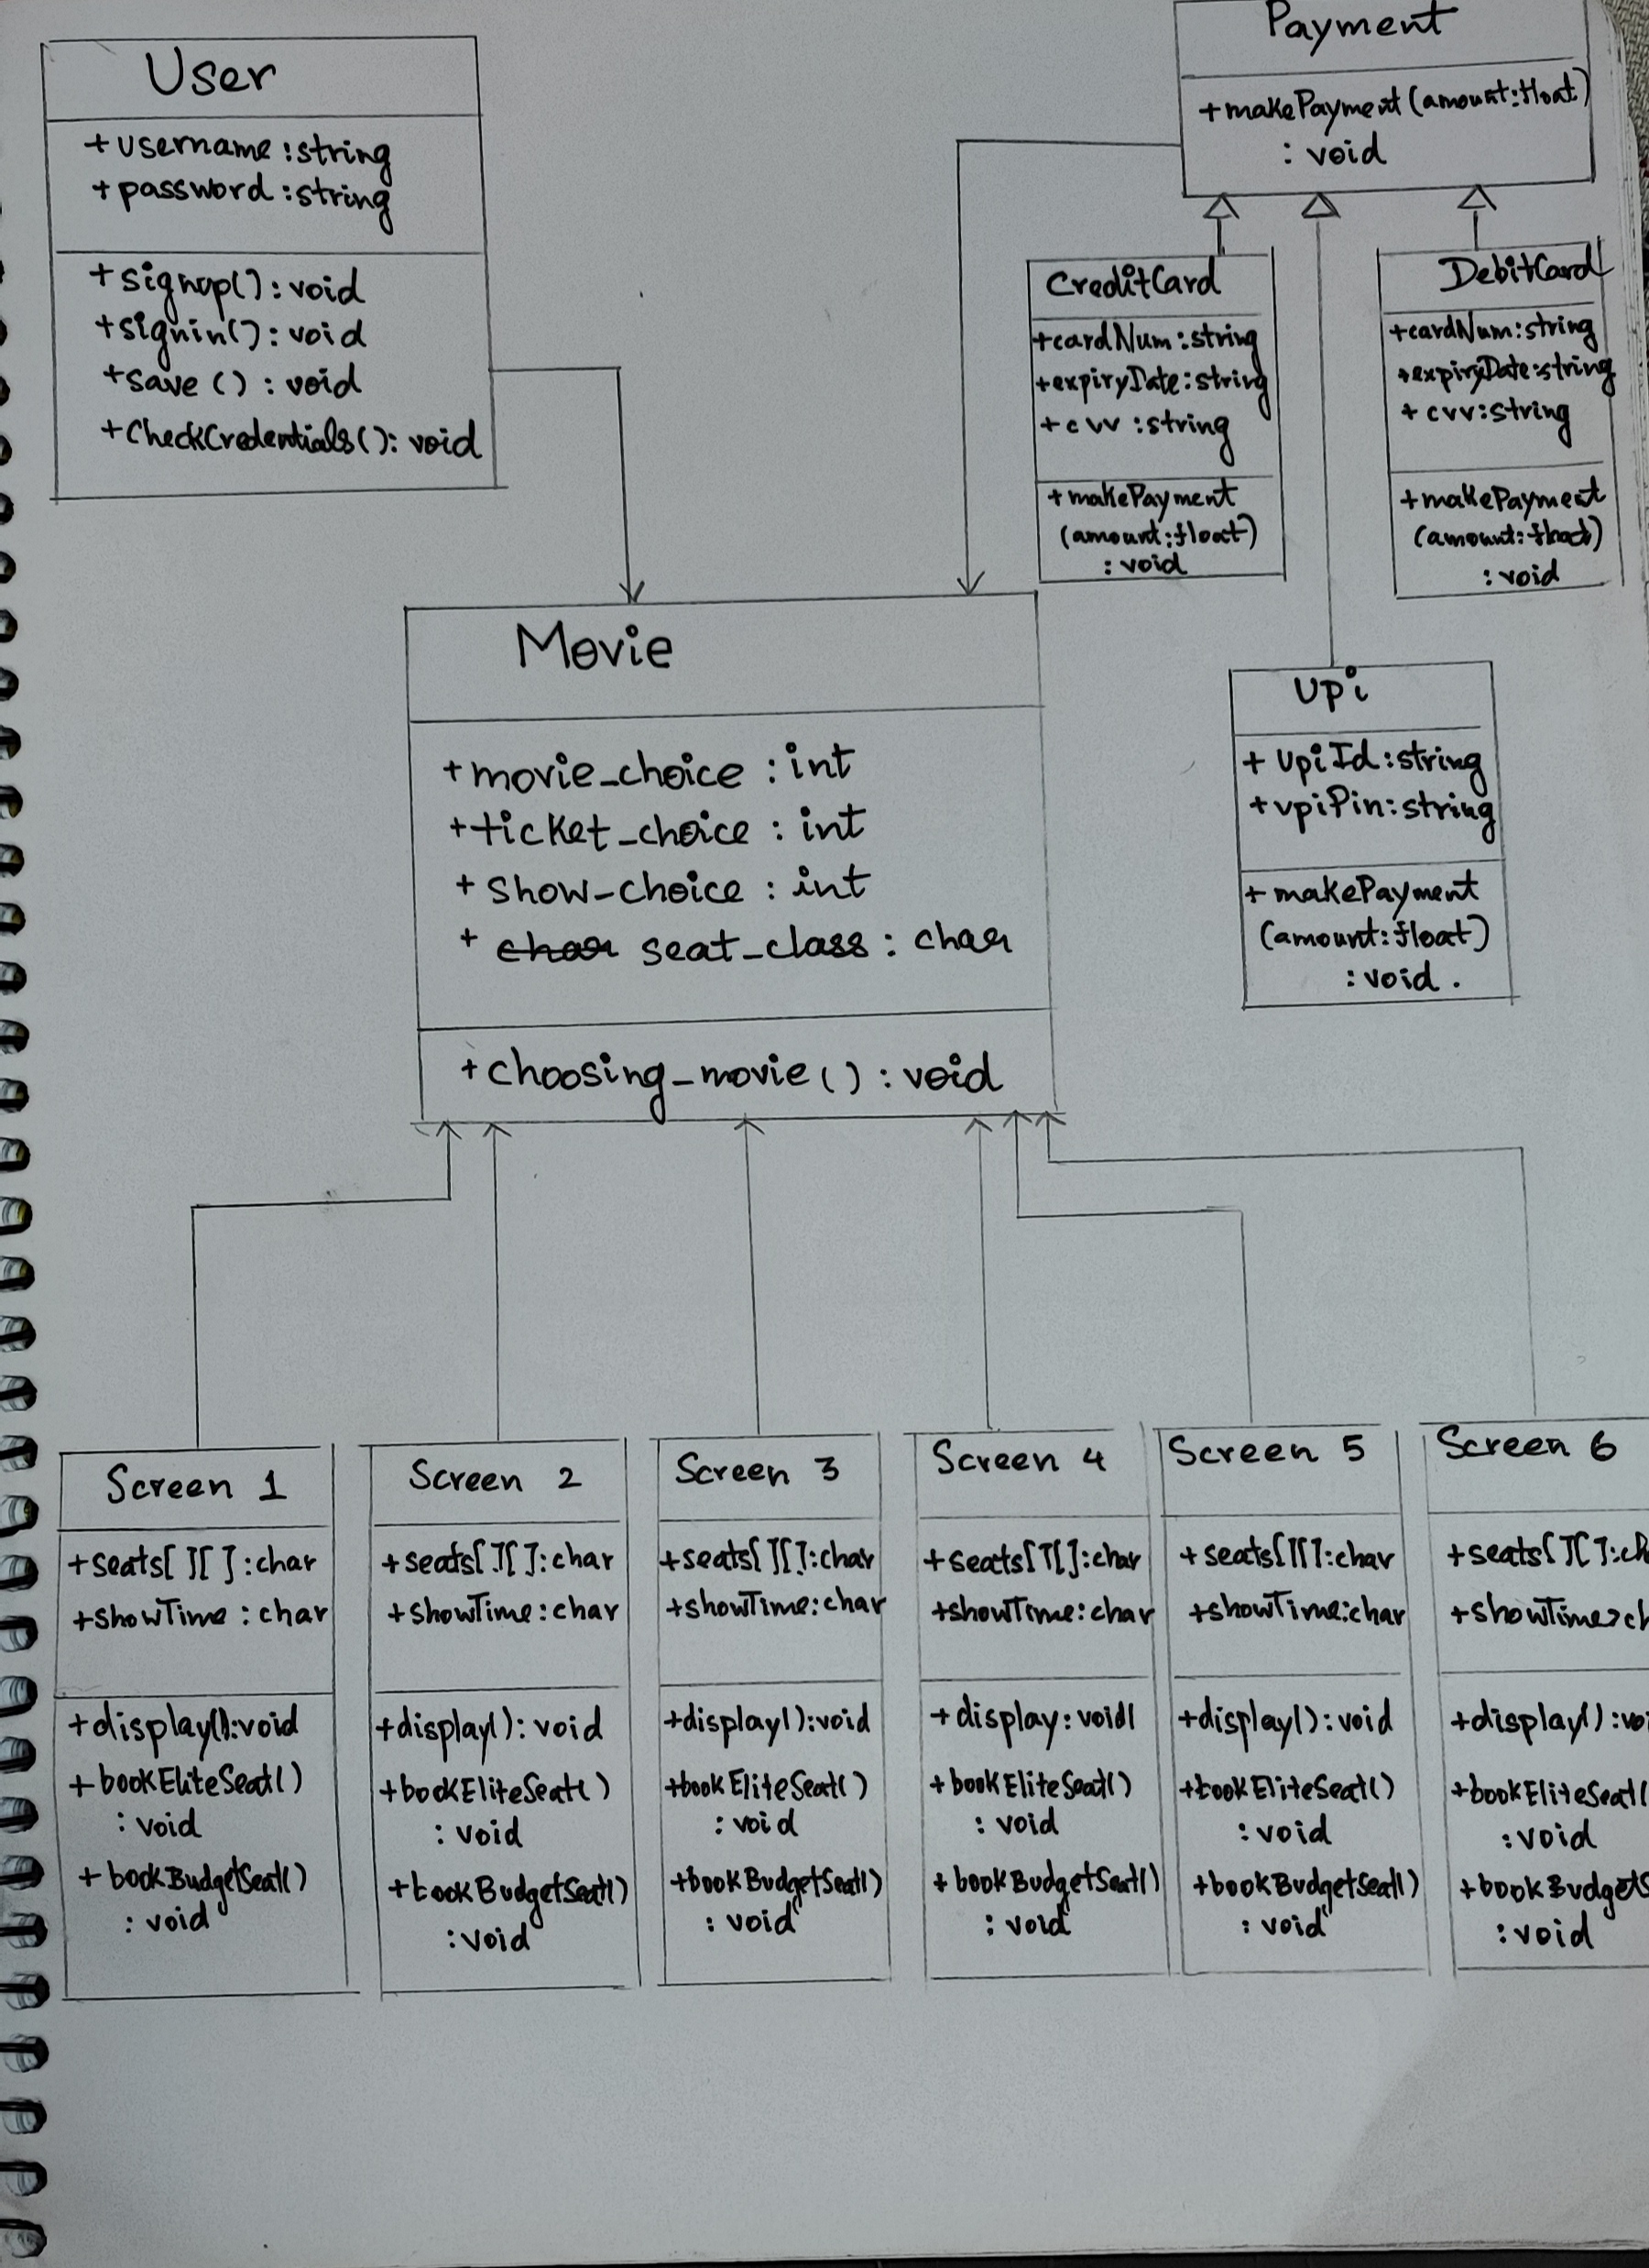 User
+username :string
+password :string
+signup() : void
+signin() : void
+save () : void
+CheckCredentials(): void
Payment
+makePayment (amount:float)
: void
CreditCard
+cardNum :string
+expiryDate:string
+cvv :string
+makePayment
(amount:float)
: void
DebitCard
+cardNum:string
+expiryDate:string
+ cvv:string
+makePayment
(amount:float)
: void
Upi
+ UpiId:string
+upiPin:string
+ makePayment
(amount:float)
: void .
Movie
+movie_choice : int
+ticket_choice : int
+ show_choice : int
+ char seat_class : char
+choosing_movie() : void
Screen 1
+seats[ ][ ] :char
+showTime : char
+display():void
+bookEliteSeat()
: void
+ bookBudgetSeat()
: void
Screen 2
+seats[ ][ ]:char
+showTime:char
+display(): void
+bookEliteSeat()
: void
+bookBudgetSeat()
:void
Screen 3
+seats[ ][ ]:char
+showTime:char
+display():void
+bookEliteSeat()
: void
+bookBudgetSeat()
: void
Screen 4
+seats[ ][ ]:char
+showTime:char
+display:void
+bookEliteSeat()
: void
+bookBudgetSeat()
: void
Screen 5
+seats[ ][ ]:char
+showTime:char
+display(): void
+bookEliteSeat()
: void
+bookBudgetSeat()
: void
Screen 6
+seats[ ][ ]:ch
+showTime:ch
+display() :vo
+bookEliteSeat(
:void
+bookBudgetS
:void